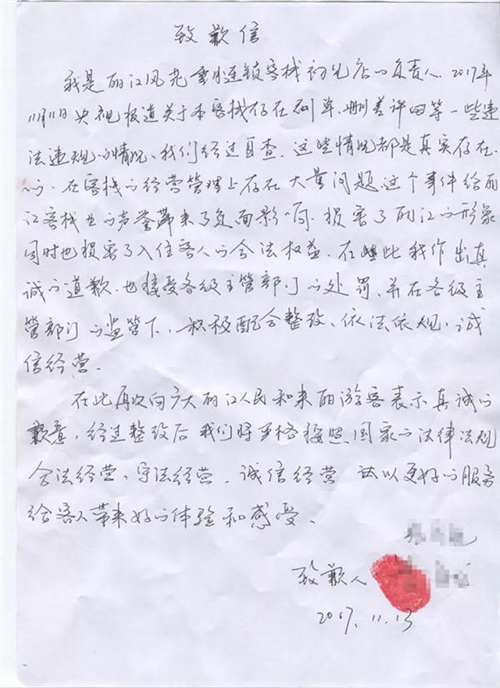 致歉信
我是丽江风花雪月连锁客栈初见店的负责人. 2017年
11月11日央视报道关于本客栈存在刷单、删差评等一些违
法违规的情况、我们经过自查、这些情况都是真实存在
的. 在客栈的经营管理上存在大量问题这个事件给丽
江客栈业的声誉带来了负面影响. 损害了丽江的形象
同时也损害了入住客人的合法权益. 在此我作出真
诚的道歉. 也接受各级主管部门的处罚、并在各级主
管部门的监管下、积极配合整改、依法依规、诚
信经营.
在此再次向广大丽江人民和来丽游客表示真诚的
歉意, 经过整改后我们将严格按照国家的法律法规
合法经营、守法经营. 诚信经营 并以更好的服务
给客人带来好的体验和感受、
致歉人
2017.11.13